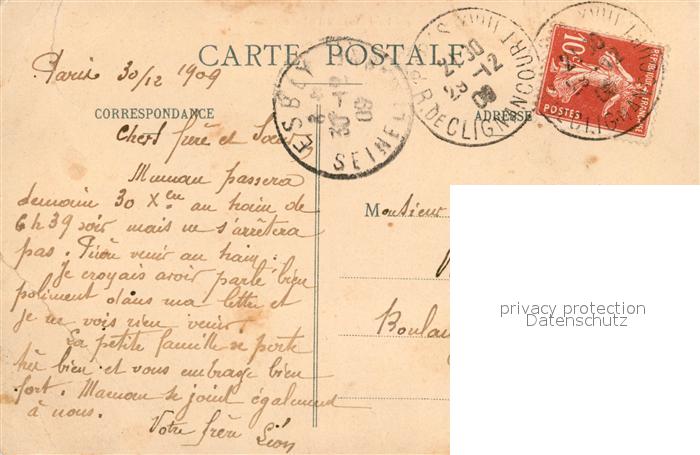 CARTE POSTALE
Paris 30/12 1909
CORRESPONDANCE
ADRESSE
Chers frère et Sœur
Maman passera
demain 30 Xbre au train de
6 h 39 soir mais ne s'arrêtera
pas. Prière venir au train.
Je croyais avoir parlé bien
poliment dans ma lettre et
je ne vois rien venir.
La petite famille se porte
très bien et vous embrasse bien
fort. Maman se joint également
à nous.
Votre frère Léon
Monsieur
Boulan
30 -12
09
SEINE
21 30
29 -12
09
R. DE CLIGNANCOURT
10c
REPUBLIQUE FRANCAISE
POSTES
privacy protection
Datenschutz